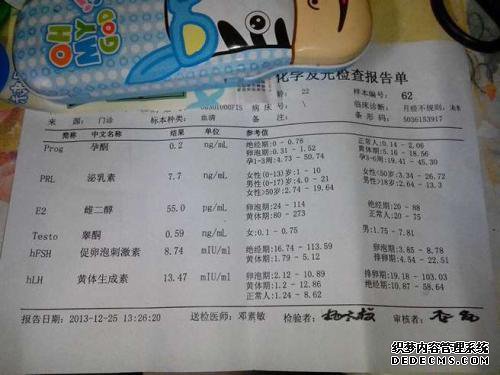 OH MY GOD
化学发光检查报告单
龄: 22 样本编号: 62
00301000FIS 病床号: \ 临床诊断: 月经不规则,
来 源: 门诊 标本种类: 血清 备 注: 条形码: 5036153917
简称 中文名称 结果 单位 参考值
Prog 孕酮 0.2 ng/mL 绝经期:0 - 0.78 正常人:0.14 - 2.06
卵泡期:0.31 - 1.52 黄体期:5.16 - 18.56
孕1-3周:4.73 - 50.74 孕3-6周:19.41 - 45.30
PRL 泌乳素 7.7 ng/mL 女性(0-13)岁:1 - 10 女性<50岁:3.34 - 26.72
男性(0-17)岁:4.0 - 21 男性>18岁:2.64 - 13.3
女性>50岁:2.74 - 19.64
E2 雌二醇 55.0 pg/mL 卵泡期:24 - 114 绝经期:20 - 88
黄体期:80 - 273 正常人:20 - 75
Testo 睾酮 0.59 ng/mL 女:0.1 - 0.75 男:1.75 - 7.81
hFSH 促卵泡刺激素 8.74 mIU/ml 绝经期:16.74 - 113.59 卵泡期:3.85 - 8.78
黄体期:1.79 - 5.12 排卵期:4.54 - 22.51
hLH 黄体生成素 13.47 mIU/ml 卵泡期:2.12 - 10.89 排卵期:19.18 - 103.03
黄体期:1.2 - 12.86 绝经期:10.87 - 58.64
正常人:1.24 - 8.62
报告日期: 2013-12-25 13:26:20 送检医师: 邓素敏 检验者: 审核者:
织梦内容管理系统
DEDECMS.COM